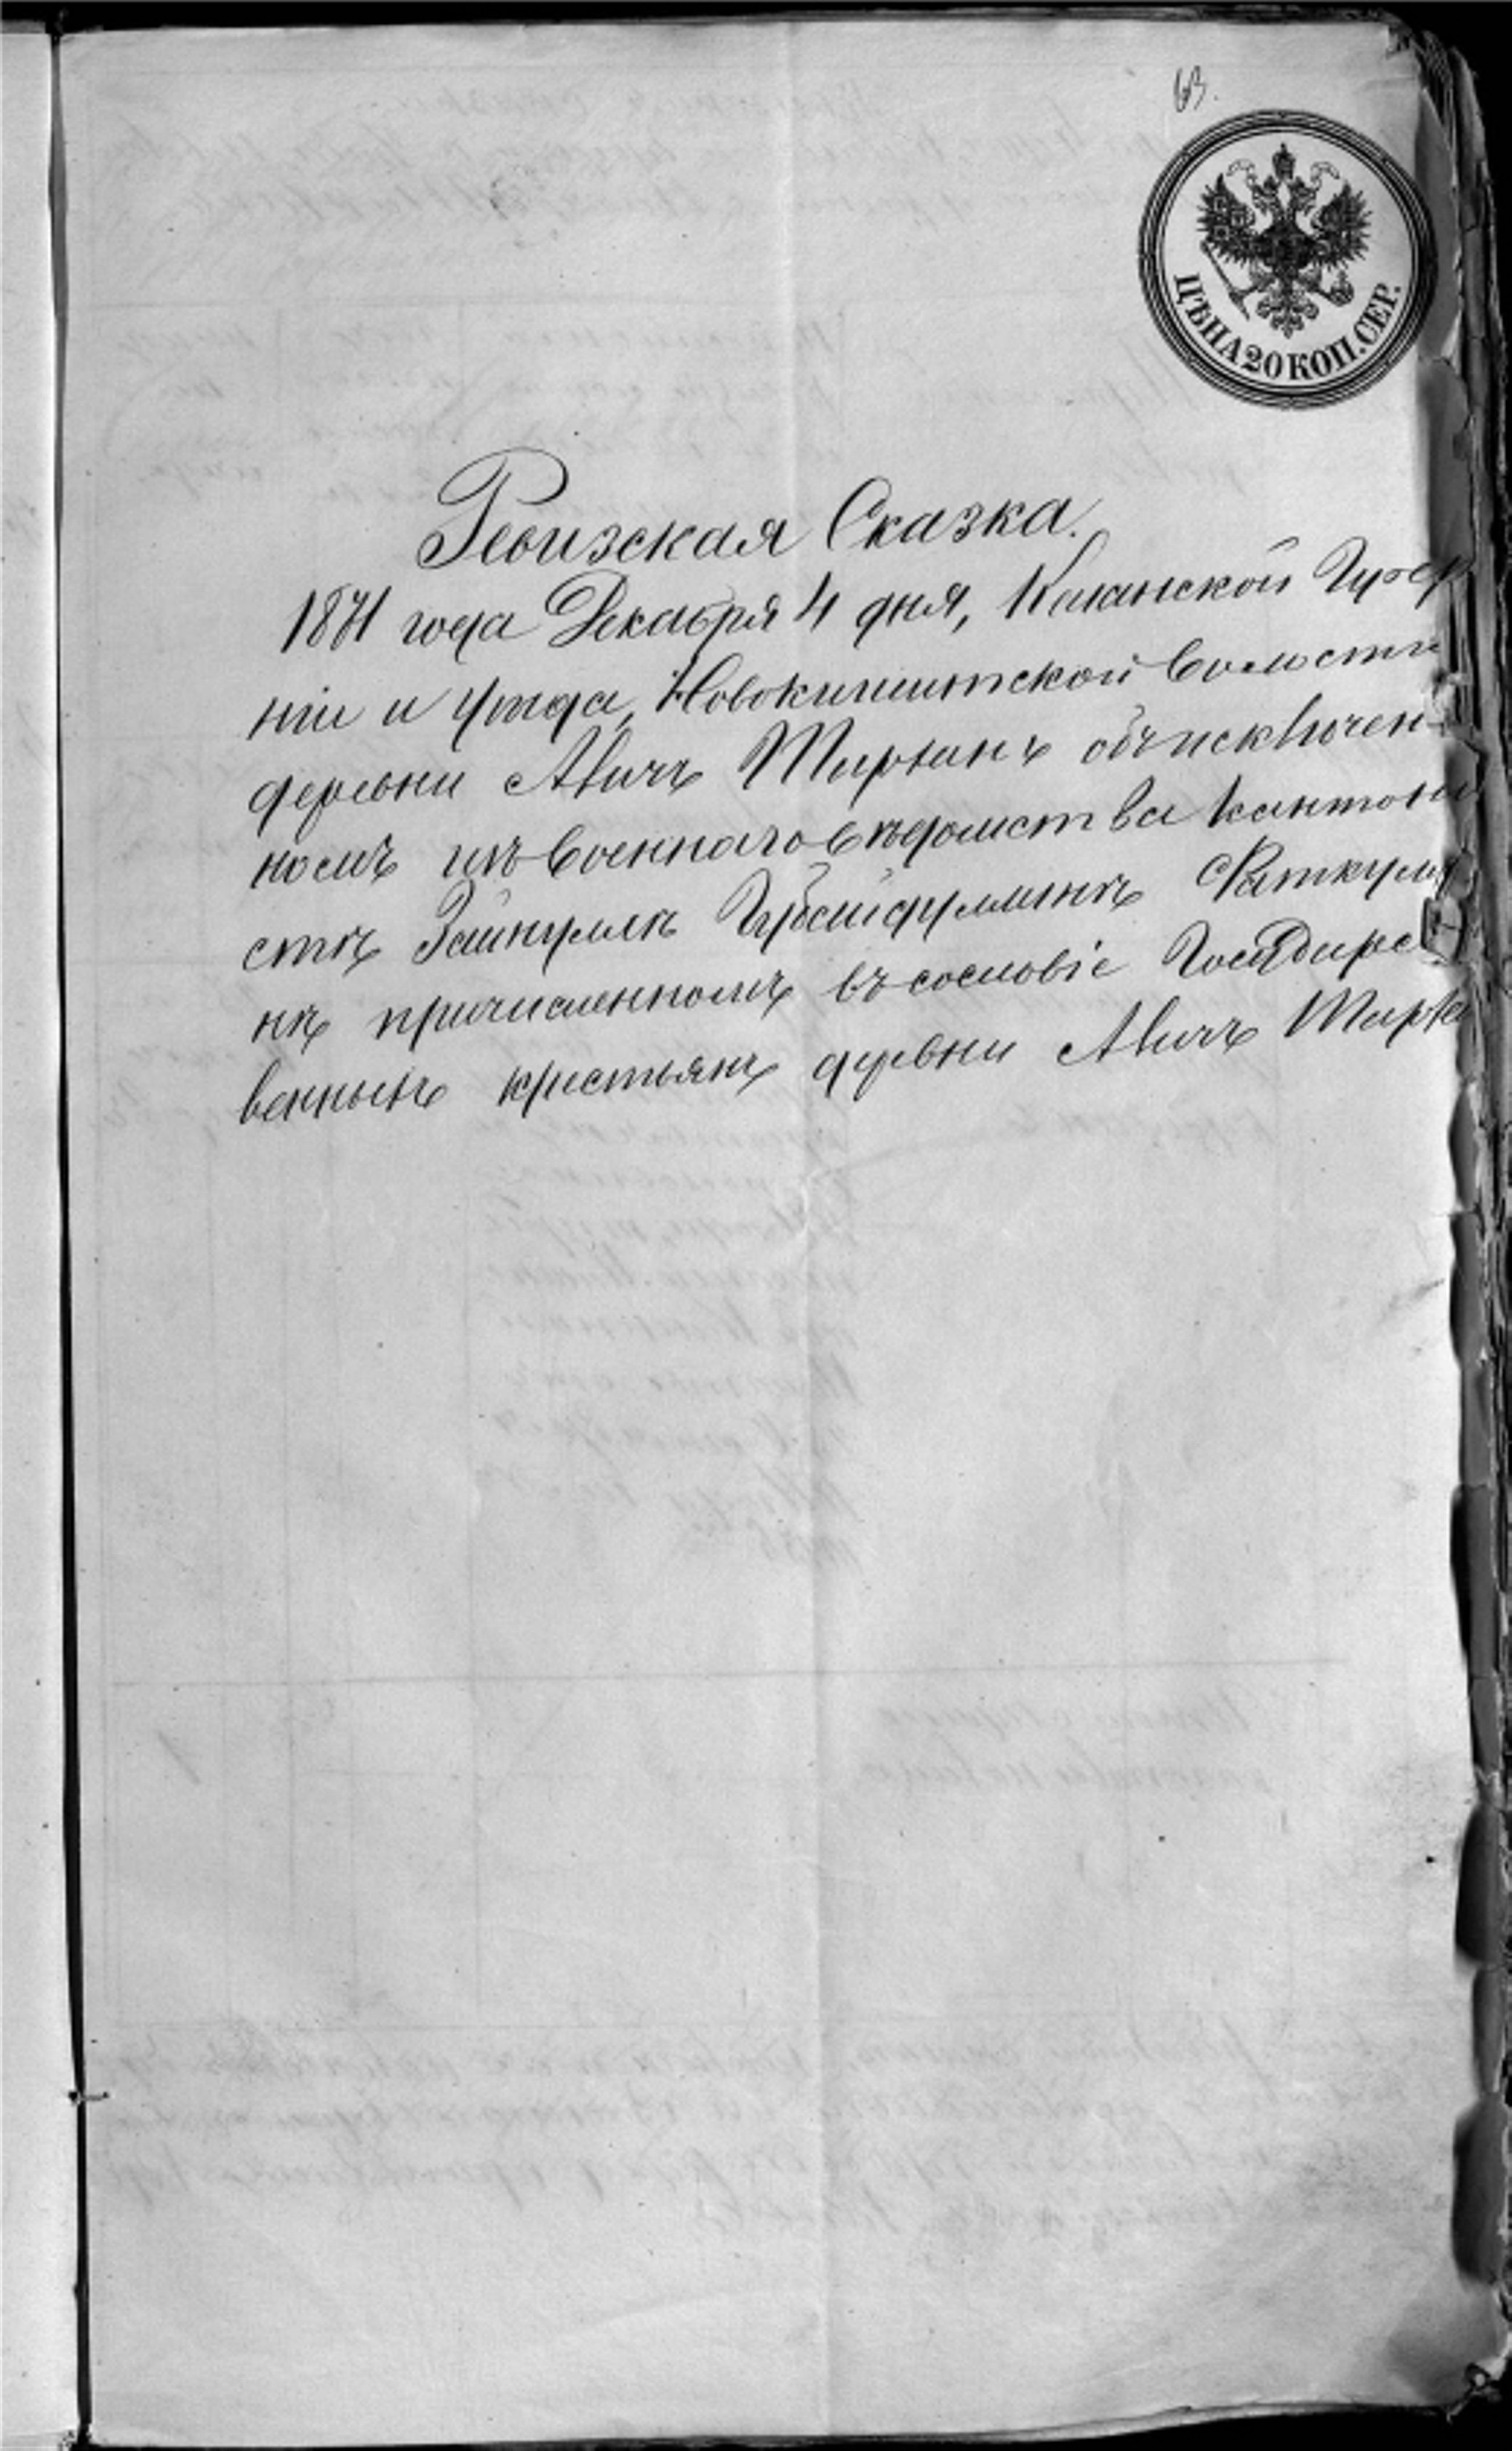 63.
ЦѢНА 20 КОП. СЕР.
Ревизская Сказка.
1871 года Декабря 4 дня, Казанской Губер
ніи и уѣзда, Новокишитской волости
деревни Алигъ Ширданъ объ исключен-
номъ изъ военнаго вѣдомства кантони
стѣ Зайнуллѣ Губайдуллинѣ Фаткулли
нѣ причисленномъ въ сословіе Государст
венныхъ крестьянъ деревни